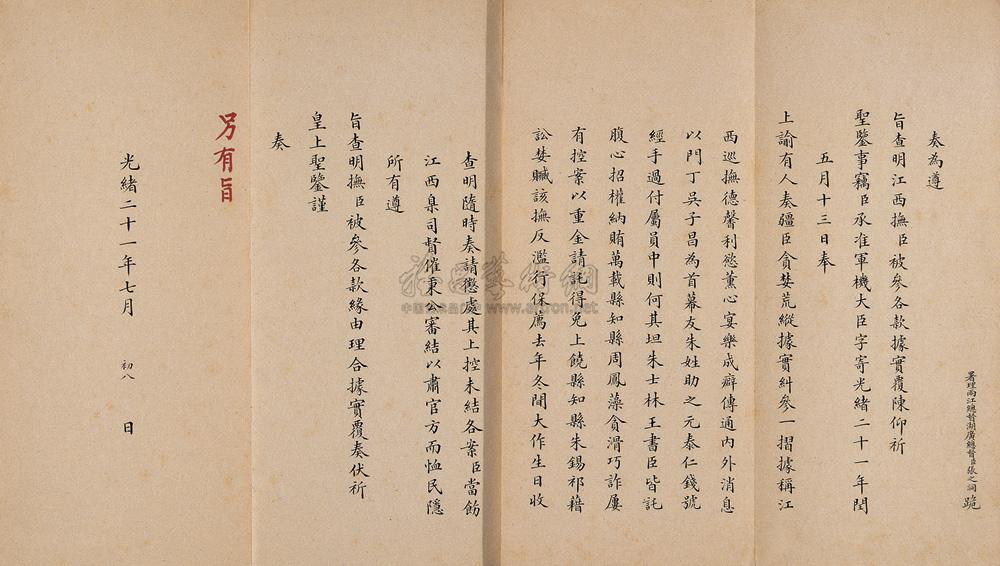 署理兩江總督湖廣總督臣張之洞跪
奏為遵
旨查明江西撫臣被參各款據實覆陳仰祈
聖鑒事竊臣承准軍機大臣字寄光緒二十一年閏
五月十三日奉
上諭有人奏疆臣貪婪荒縱據實糾參一摺據稱江
西巡撫德馨利慾薰心宴樂成癖傳通內外消息
以門丁吳子昌為首幕友朱姓助之元泰仁錢號
經手過付屬員中則何其坦朱士林王書臣皆託
腹心招權納賄萬載縣知縣周鳳藻貪滑巧詐屢
有控案以重金請託得免上饒縣知縣朱錫祁藉
訟婪贓該撫反濫行保薦去年冬間大作生日收
查明隨時奏請懲處其上控未結各案臣當飭
江西臬司督催秉公審結以肅官方而恤民隱
所有遵
旨查明撫臣被參各款緣由理合據實覆奏伏祈
皇上聖鑒謹
奏
另有旨
光緒二十一年七月 初八 日